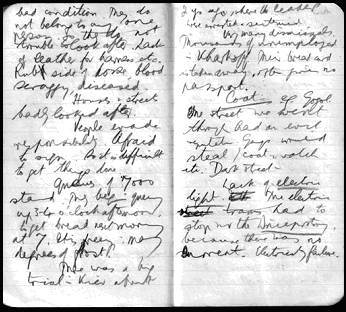 bad condition. They do
not belong to any one
person so they do not
trouble to look after. Lack
of leather for harness etc.
Rub side of horse blood
scraggy, diseased.
Houses & streets
badly looked after
People evade
responsibility. Afraid
to sign. Most difficult
to get things done.
Queues. 7000
stand. They begin queuing
up 3-4 o'clock afternoon
to get bread next morning
at 7. It's freezing: many
degrees of frost.
There was a big
trial - Kiev
2 yrs ago where the leaders
were arrested & sentenced.
V. many dismissals.
Thousands of unemployed
- Kharkoff. Their bread card
is taken away, often given no
passport.
Coal
One street we went
through had an evil
reputation. Gangs would
steal / coat & watch
etc. Dark Street.
Lack of electric
light. The electric
trams had to
stop nr. the
because there was no
current. Electricity failure.